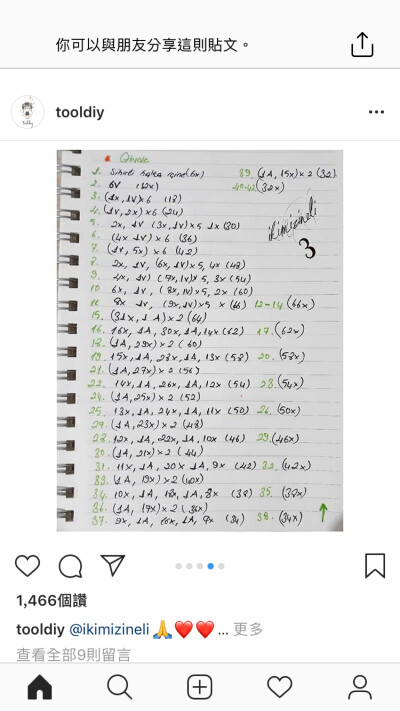 你可以與朋友分享這則貼文。
tooldiy
Gövde
1. Sihirli halka içine (6x) 39. (1A, 15x) × 2 (32)
2. 6V (12x) 40-42 (32x)
ikimizineli
3
3. (1x, 1V) × 6 (18)
4. (1V, 2x) × 6 (24)
5. 2x, 1V (3x, 1V) × 5 1x (30)
6. (4x 1V) × 6 (36)
7. (1V, 5x) × 6 (42)
8. 2x, 1V, (6x, 1V) × 5, 4x (48)
9. 4x, 1V, (7x, 1V) × 5, 3x (54)
10. 6x, 1V, (8x, 1V) × 5, 2x (60)
11. 8x 1V, (9x, 1V) × 5 x (66) 12-14 (66x)
15. (31x, 1A) × 2 (64)
16. 16x, 1A, 30x, 1A, 14x (62) 17. (62x)
18. (1A, 29x) × 2 (60)
19. 15x, 1A, 28x, 1A, 13x (58) 20. (58x)
21. (1A, 27x) × 2 (56)
22. 14x, 1A, 26x, 1A, 12x (54) 23. (54x)
24. (1A, 25x) × 2 (52)
25. 13x, 1A, 24x, 1A, 11x (50) 26. (50x)
27. (1A, 23x) × 2 (48)
28. 12x, 1A, 22x, 1A, 10x (46) 29. (46x)
30. (1A, 21x) × 2 (44)
31. 11x, 1A, 20x 1A, 9x (42) 32. (42x)
33. (1A, 19x) × 2 (40x)
34. 10x, 1A, 18x, 1A, 8x (38) 35. (38x)
36. (1A, 17x) × 2 (36x)
37. 9x, 1A, 16x, 1A, 7x (34) 38. (34x)
1,466個讚
tooldiy @ikimizineli 🙏❤️❤️ ... 更多
查看全部9則留言